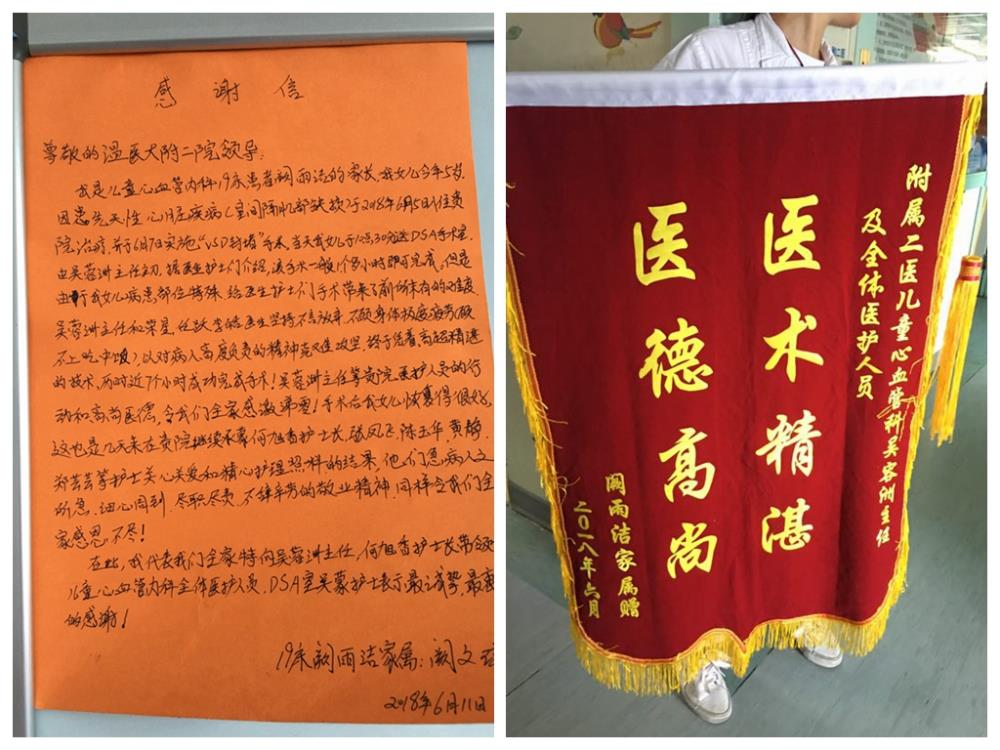 感谢信
尊敬的温医大附二院领导:
我是儿童心血管内科19床患者阙雨洁的家长,我女儿今年5岁,
因患先天性心脏疾病(室间隔肌部缺损)于2018年6月5日住贵
院治疗,并于6月7日实施“VSD封堵”手术,当天我女儿于12点30分进DSA手术室,
由吴蓉洲主任主刀,据医生护士们介绍,该手术一般1个多小时即可完成。但是
由于我女儿病患部位特殊,给医生护士们手术带来了前所未有的难度
吴蓉洲主任和荣星、任跃、李皓医生坚持不言放弃,不顾身体极度疲劳(顾
不上吃中饭)以对病人高度负责的精神克难攻坚,终于凭着高超精湛
的技术,历时近7个小时成功完成手术!吴蓉洲主任等贵院医护人员的行
动和高尚医德,令我们全家感激涕零!手术后我女儿恢复得很好,
这也是几天来在贵院继续承蒙何旭香护士长,张凤飞,陈玉华,黄静,
郑芸芸等护士关心关爱和精心护理照料的结果,他们急病人之
所急,细心周到,尽职尽责,不辞辛劳的敬业精神,同样令我们全
家感恩不尽!
在此,我代表我们全家特向吴蓉洲主任,何旭香护士长带领
儿童心血管内科全体医护人员,DSA室吴蒙护士表示最诚挚,最衷
的感谢!
19床阙雨洁家属:阙文
2018年6月11日
附属二医儿童心血管科吴容洲主任
及全体医护人员
医术精湛
医德高尚
阙雨洁家属赠
二〇一八年六月